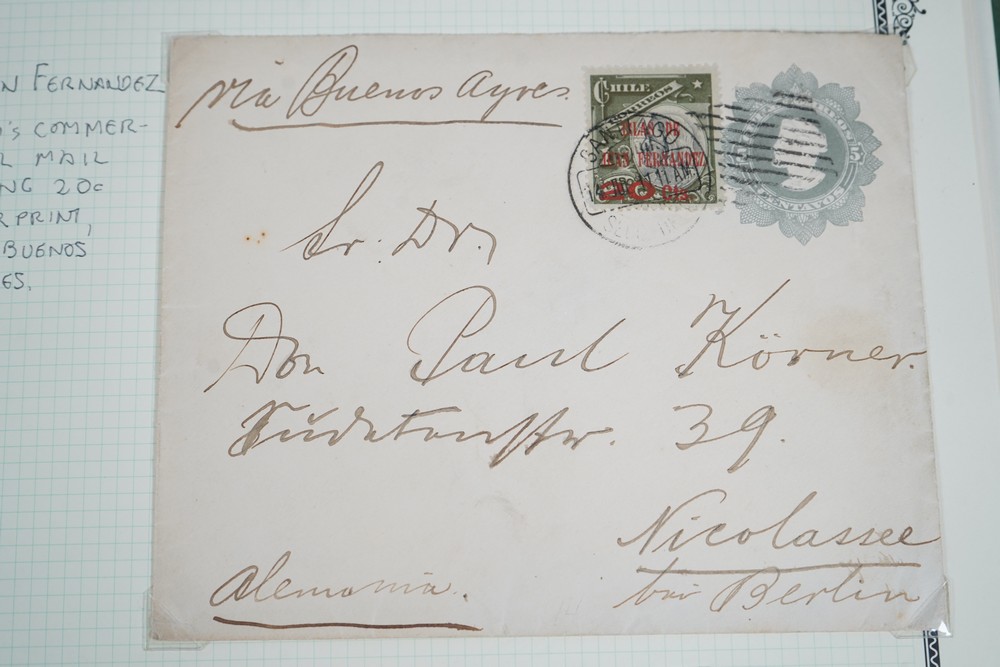 N FERNANDEZ
'S COMMER-
MAIL
NG 20c
RPRINT,
BUENOS
ES.
via Buenos Ayres.
CHILE
ISLAS DE
JUAN FERNANDEZ
20 Cts
SANTIAGO
11 AM
5
CENTAVOS
Sr. Dr.
Don Paul Körner.
Sudetenstr. 39.
Nicolassee
bei Berlin
Alemania.